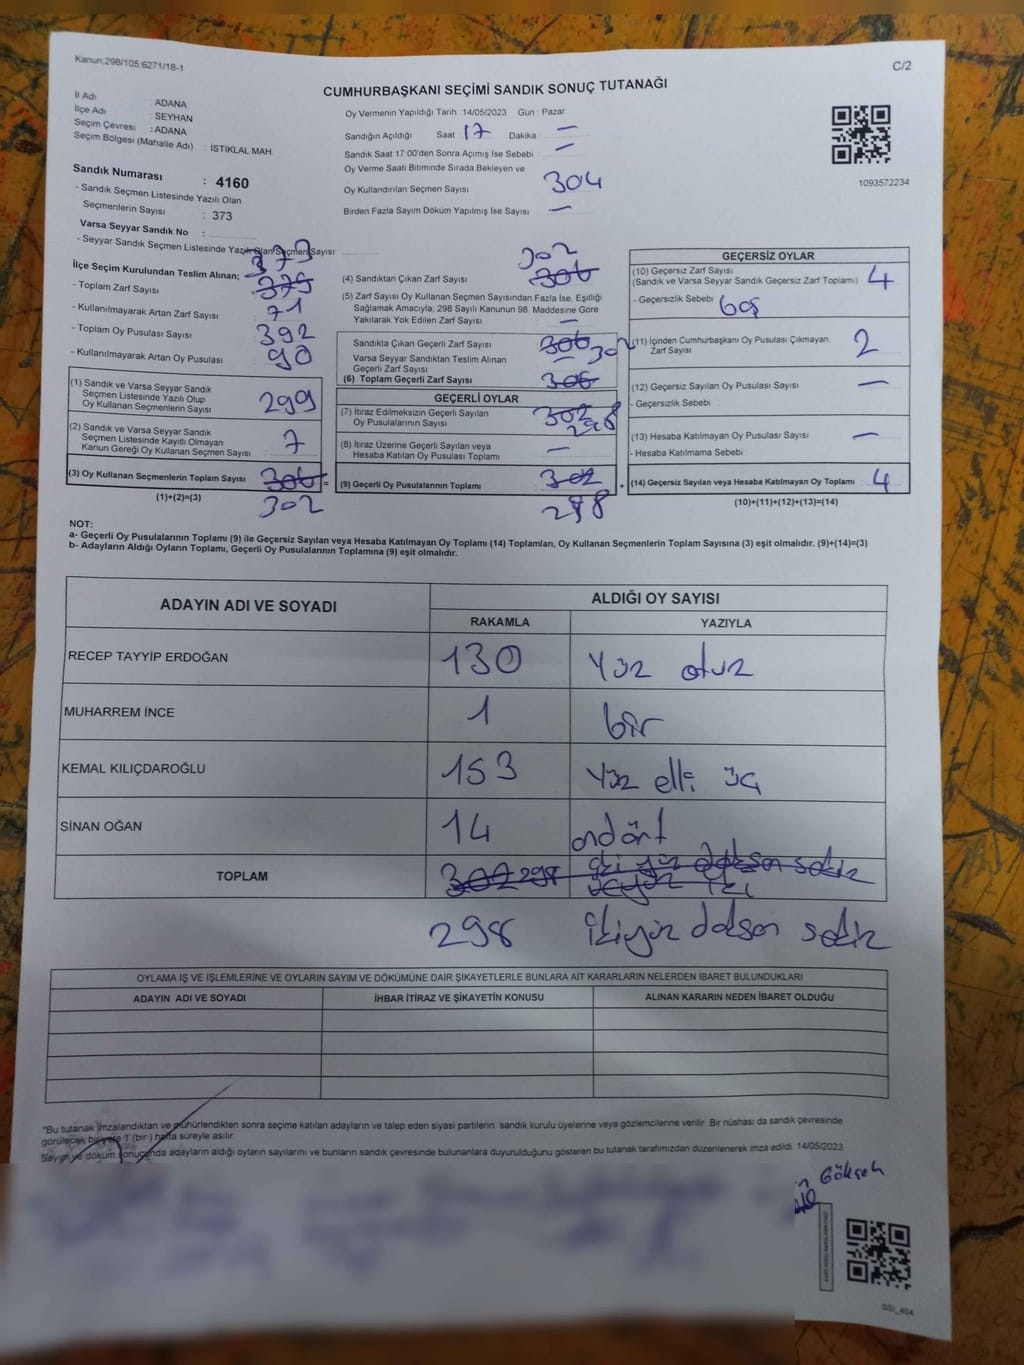 Kanun.298/105.6271/18-1
C/2
CUMHURBAŞKANI SEÇİMİ SANDIK SONUÇ TUTANAĞI
İl Adı : ADANA
İlçe Adı SEYHAN
Seçim Çevresi : ADANA
Seçim Bölgesi (Mahalle Adı) : İSTİKLAL MAH.
Oy Vermenin Yapıldığı Tarih 14/05/2023 Gün : Pazar
Sandığın Açıldığı Saat 17 Dakika —
Sandık Saat 17:00'den Sonra Açımış İse Sebebi : —
Oy Verme Saati Bitiminde Sırada Bekleyen ve
Oy Kullandırılan Seçmen Sayısı 304
Birden Fazla Sayım Döküm Yapılmış İse Sayısı —
1093572234
Sandık Numarası : 4160
- Sandık Seçmen Listesinde Yazılı Olan
Seçmenlerin Sayısı : 373
Varsa Seyyar Sandık No :
- Seyyar Sandık Seçmen Listesinde Yazılı Olan Seçmen Sayısı:
İlçe Seçim Kurulundan Teslim Alınan;
373
- Toplam Zarf Sayısı 375
- Kullanılmayarak Artan Zarf Sayısı 71
- Toplam Oy Pusulası Sayısı 392
- Kullanılmayarak Artan Oy Pusulası 90
(1) Sandık ve Varsa Seyyar Sandık
Seçmen Listesinde Yazılı Olup
Oy Kullanan Seçmenlerin Sayısı 299
(2) Sandık ve Varsa Seyyar Sandık
Seçmen Listesinde Kayıtlı Olmayan
Kanun Gereği Oy Kullanan Seçmen Sayısı : 7
(3) Oy Kullanan Seçmenlerin Toplam Sayısı 306 =
302
(1)+(2)=(3)
302
(4) Sandıktan Çıkan Zarf Sayısı 306
(5) Zarf Sayısı Oy Kullanan Seçmen Sayısından Fazla İse, Eşitliği
Sağlamak Amacıyla; 298 Sayılı Kanunun 98. Maddesine Göre
Yakılarak Yok Edilen Zarf Sayısı —
Sandıkta Çıkan Geçerli Zarf Sayısı 306 302
Varsa Seyyar Sandıktan Teslim Alınan
Geçerli Zarf Sayısı —
(6) Toplam Geçerli Zarf Sayısı 306
GEÇERLİ OYLAR
(7) İtiraz Edilmeksizin Geçerli Sayılan
Oy Pusulalarının Sayısı 302 298
(8) İtiraz Üzerine Geçerli Sayılan veya
Hesaba Katılan Oy Pusulası Toplamı —
(9) Geçerli Oy Pusulalarının Toplamı 302 +
298
GEÇERSİZ OYLAR
(10) Geçersiz Zarf Sayısı
(Sandık ve Varsa Seyyar Sandık Geçersiz Zarf Toplamı) 4
- Geçersizlik Sebebi boş
(11) İçinden Cumhurbaşkanı Oy Pusulası Çıkmayan
Zarf Sayısı 2
(12) Geçersiz Sayılan Oy Pusulası Sayısı —
- Geçersizlik Sebebi
(13) Hesaba Katılmayan Oy Pusulası Sayısı —
- Hesaba Katılmama Sebebi
(14) Geçersiz Sayılan veya Hesaba Katılmayan Oy Toplamı 4
(10)+(11)+(12)+(13)=(14)
NOT:
a- Geçerli Oy Pusulalarının Toplamı (9) ile Geçersiz Sayılan veya Hesaba Katılmayan Oy Toplamı (14) Toplamları, Oy Kullanan Seçmenlerin Toplam Sayısına (3) eşit olmalıdır. (9)+(14)=(3)
b- Adayların Aldığı Oyların Toplamı, Geçerli Oy Pusulalarının Toplamına (9) eşit olmalıdır.
ADAYIN ADI VE SOYADI ALDIĞI OY SAYISI
RAKAMLA YAZIYLA
RECEP TAYYİP ERDOĞAN 130 Yüz otuz
MUHARREM İNCE 1 bir
KEMAL KILIÇDAROĞLU 153 Yüz elli üç
SİNAN OĞAN 14 ondört
TOPLAM 302 298 iki yüz doksan sekiz
298 ikiyüz doksan sekiz
OYLAMA İŞ VE İŞLEMLERİNE VE OYLARIN SAYIM VE DÖKÜMÜNE DAİR ŞİKAYETLERLE BUNLARA AİT KARARLARIN NELERDEN İBARET BULUNDUKLARI
ADAYIN ADI VE SOYADI İHBAR İTİRAZ VE ŞİKAYETİN KONUSU ALINAN KARARIN NEDEN İBARET OLDUĞU
*Bu tutanak imzalandıktan ve mühürlendikten sonra seçime katılan adayların ve talep eden siyasi partilerin sandık kurulu üyelerine veya gözlemcilerine verilir. Bir nüshası da sandık çevresinde
görülecek bir yere 1 (bir) hafta süreyle asılır.
Sayım ve döküm sonucunda adayların aldığı oyların sayılarını ve bunların sandık çevresinde bulunanlara duyurulduğunu gösteren bu tutanak tarafımızdan düzenlenerek imza edildi. 14/05/2023
Gökçek